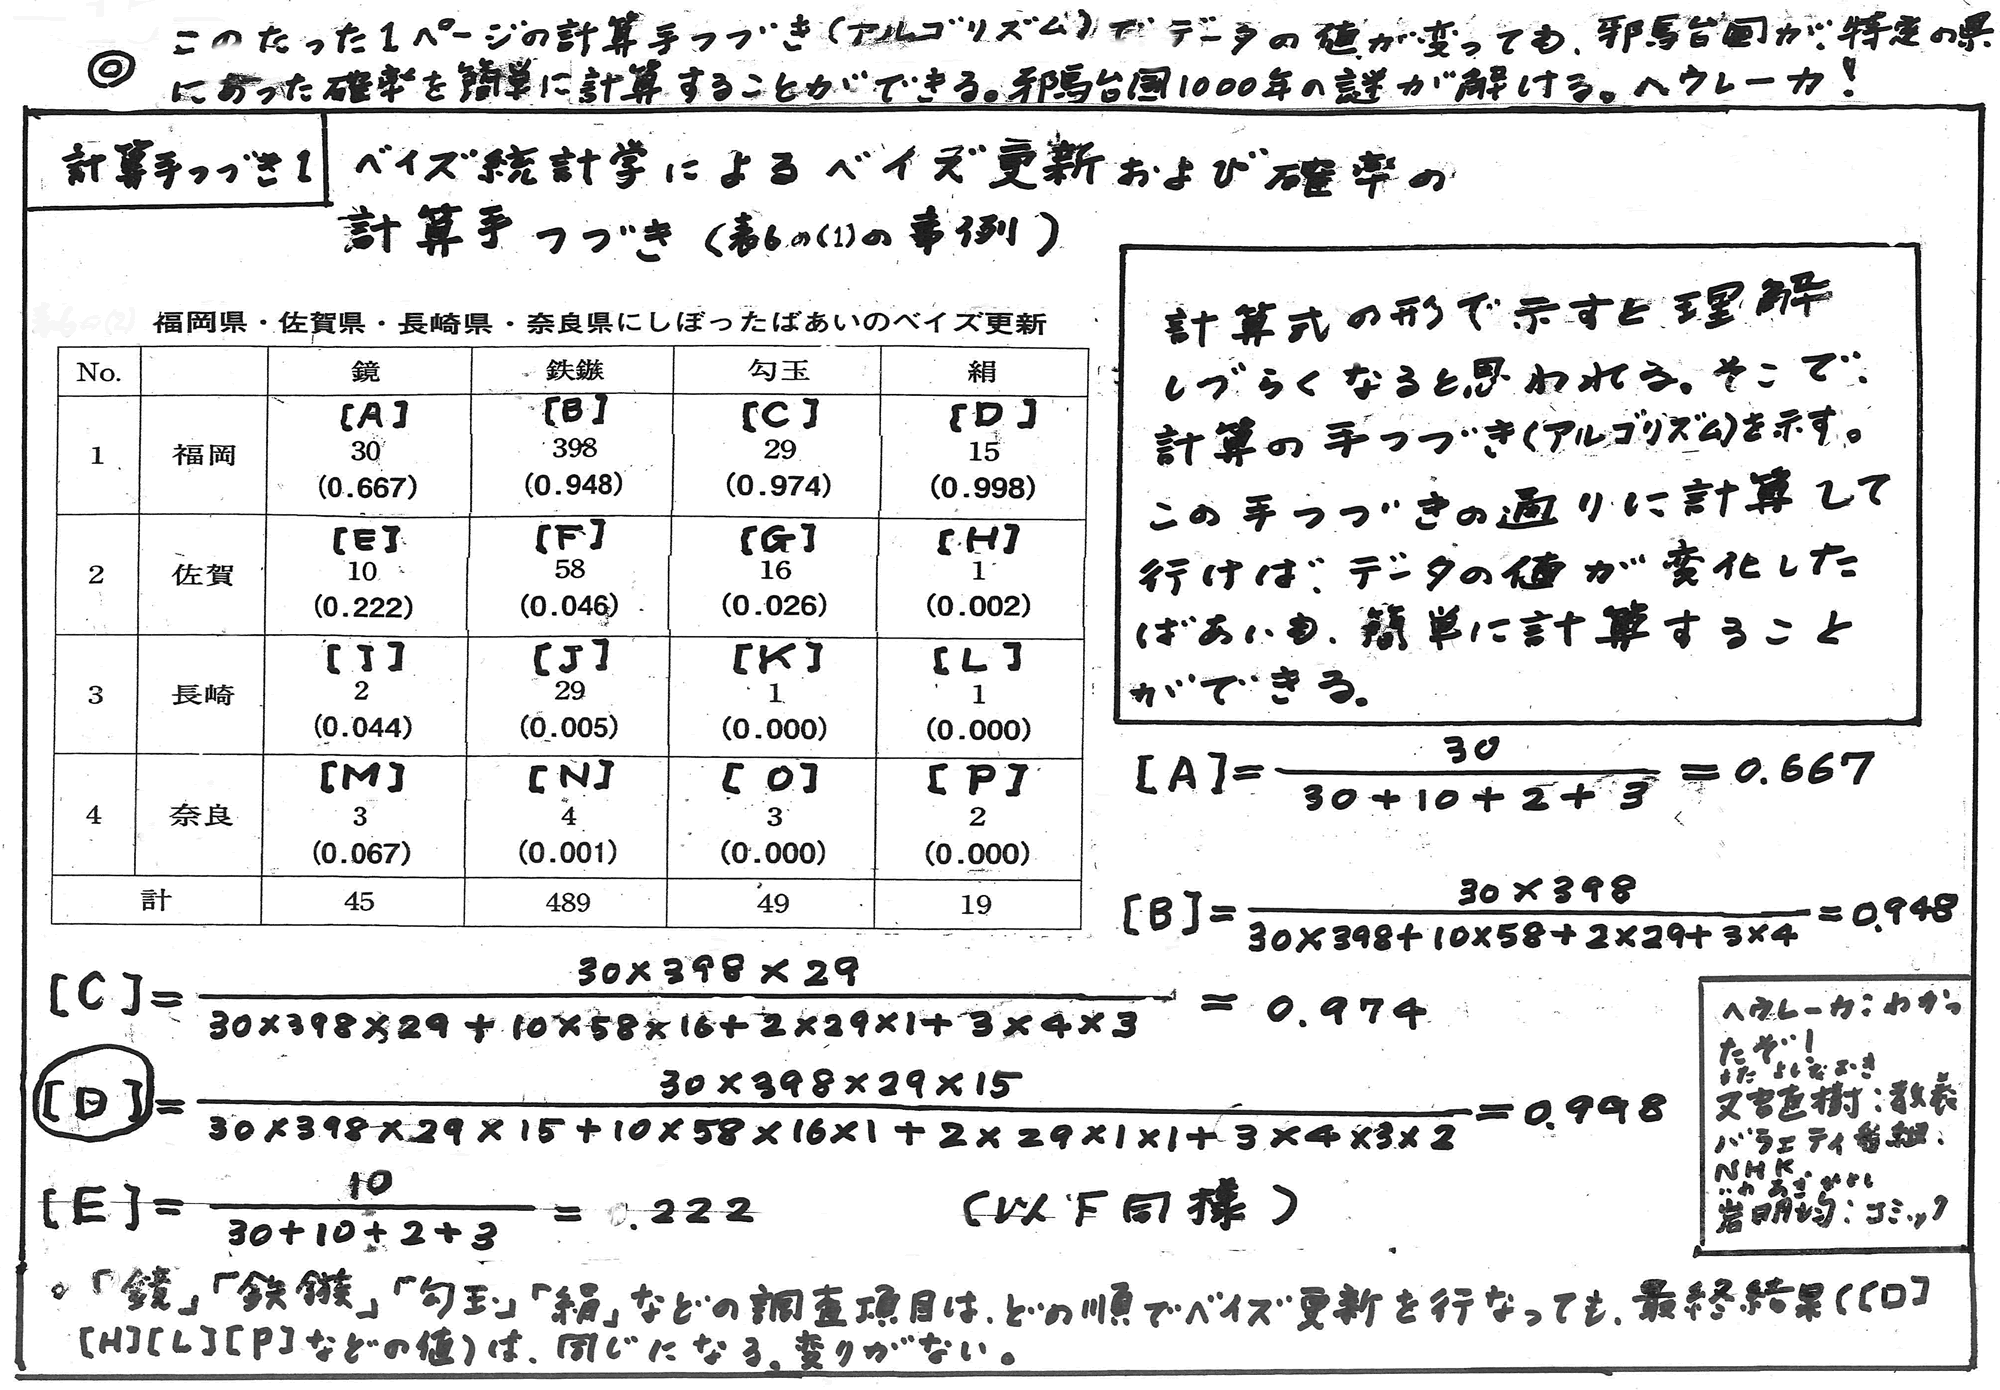 ◎ このたった1ページの計算手つづき(アルゴリズム)でデータの値が変っても、邪馬台国が、特定の県
にあった確率を簡単に計算することができる。邪馬台国1000年の謎が解ける。ヘウレーカ!
計算手つづき1
ベイズ統計学によるベイズ更新および確率の
計算手つづき(表6の(1)の事例)
福岡県・佐賀県・長崎県・奈良県にしぼったばあいのベイズ更新
No. 鏡 鉄鏃 勾玉 絹
[A] [B] [C] [D]
1 福岡 30 398 29 15
(0.667) (0.948) (0.974) (0.998)
[E] [F] [G] [H]
2 佐賀 10 58 16 1
(0.222) (0.046) (0.026) (0.002)
[I] [J] [K] [L]
3 長崎 2 29 1 1
(0.044) (0.005) (0.000) (0.000)
[M] [N] [O] [P]
4 奈良 3 4 3 2
(0.067) (0.001) (0.000) (0.000)
計 45 489 49 19
計算式の形で示すと理解
しづらくなると思われる。そこで、
計算の手つづき(アルゴリズム)を示す。
この手つづきの通りに計算して
行けば、データの値が変化した
ばあいも、簡単に計算すること
ができる。
30
[A]= = 0.667
30+10+2+3
30×398
[B]= =0.948
30×398+10×58+2×29+3×4
30×398×29
[C]= = 0.974
30×398×29+10×58×16+2×29×1+3×4×3
30×398×29×15
[D]= =0.998
30×398×29×15+10×58×16×1+2×29×1×1+3×4×3×2
10
[E]= = 0.222 (以下同様)
30+10+2+3
ヘウレーカ:わかっ
たぞ!
またよしなおき
又吉直樹:教養
バラエティ番組:
NHK.
いわあきひとし
岩明均:コミック
。「鏡」「鉄鏃」「勾玉」「絹」などの調査項目は、どの順でベイズ更新を行なっても、最終結果([D]
[H][L][P]などの値)は、同じになる。変りがない。